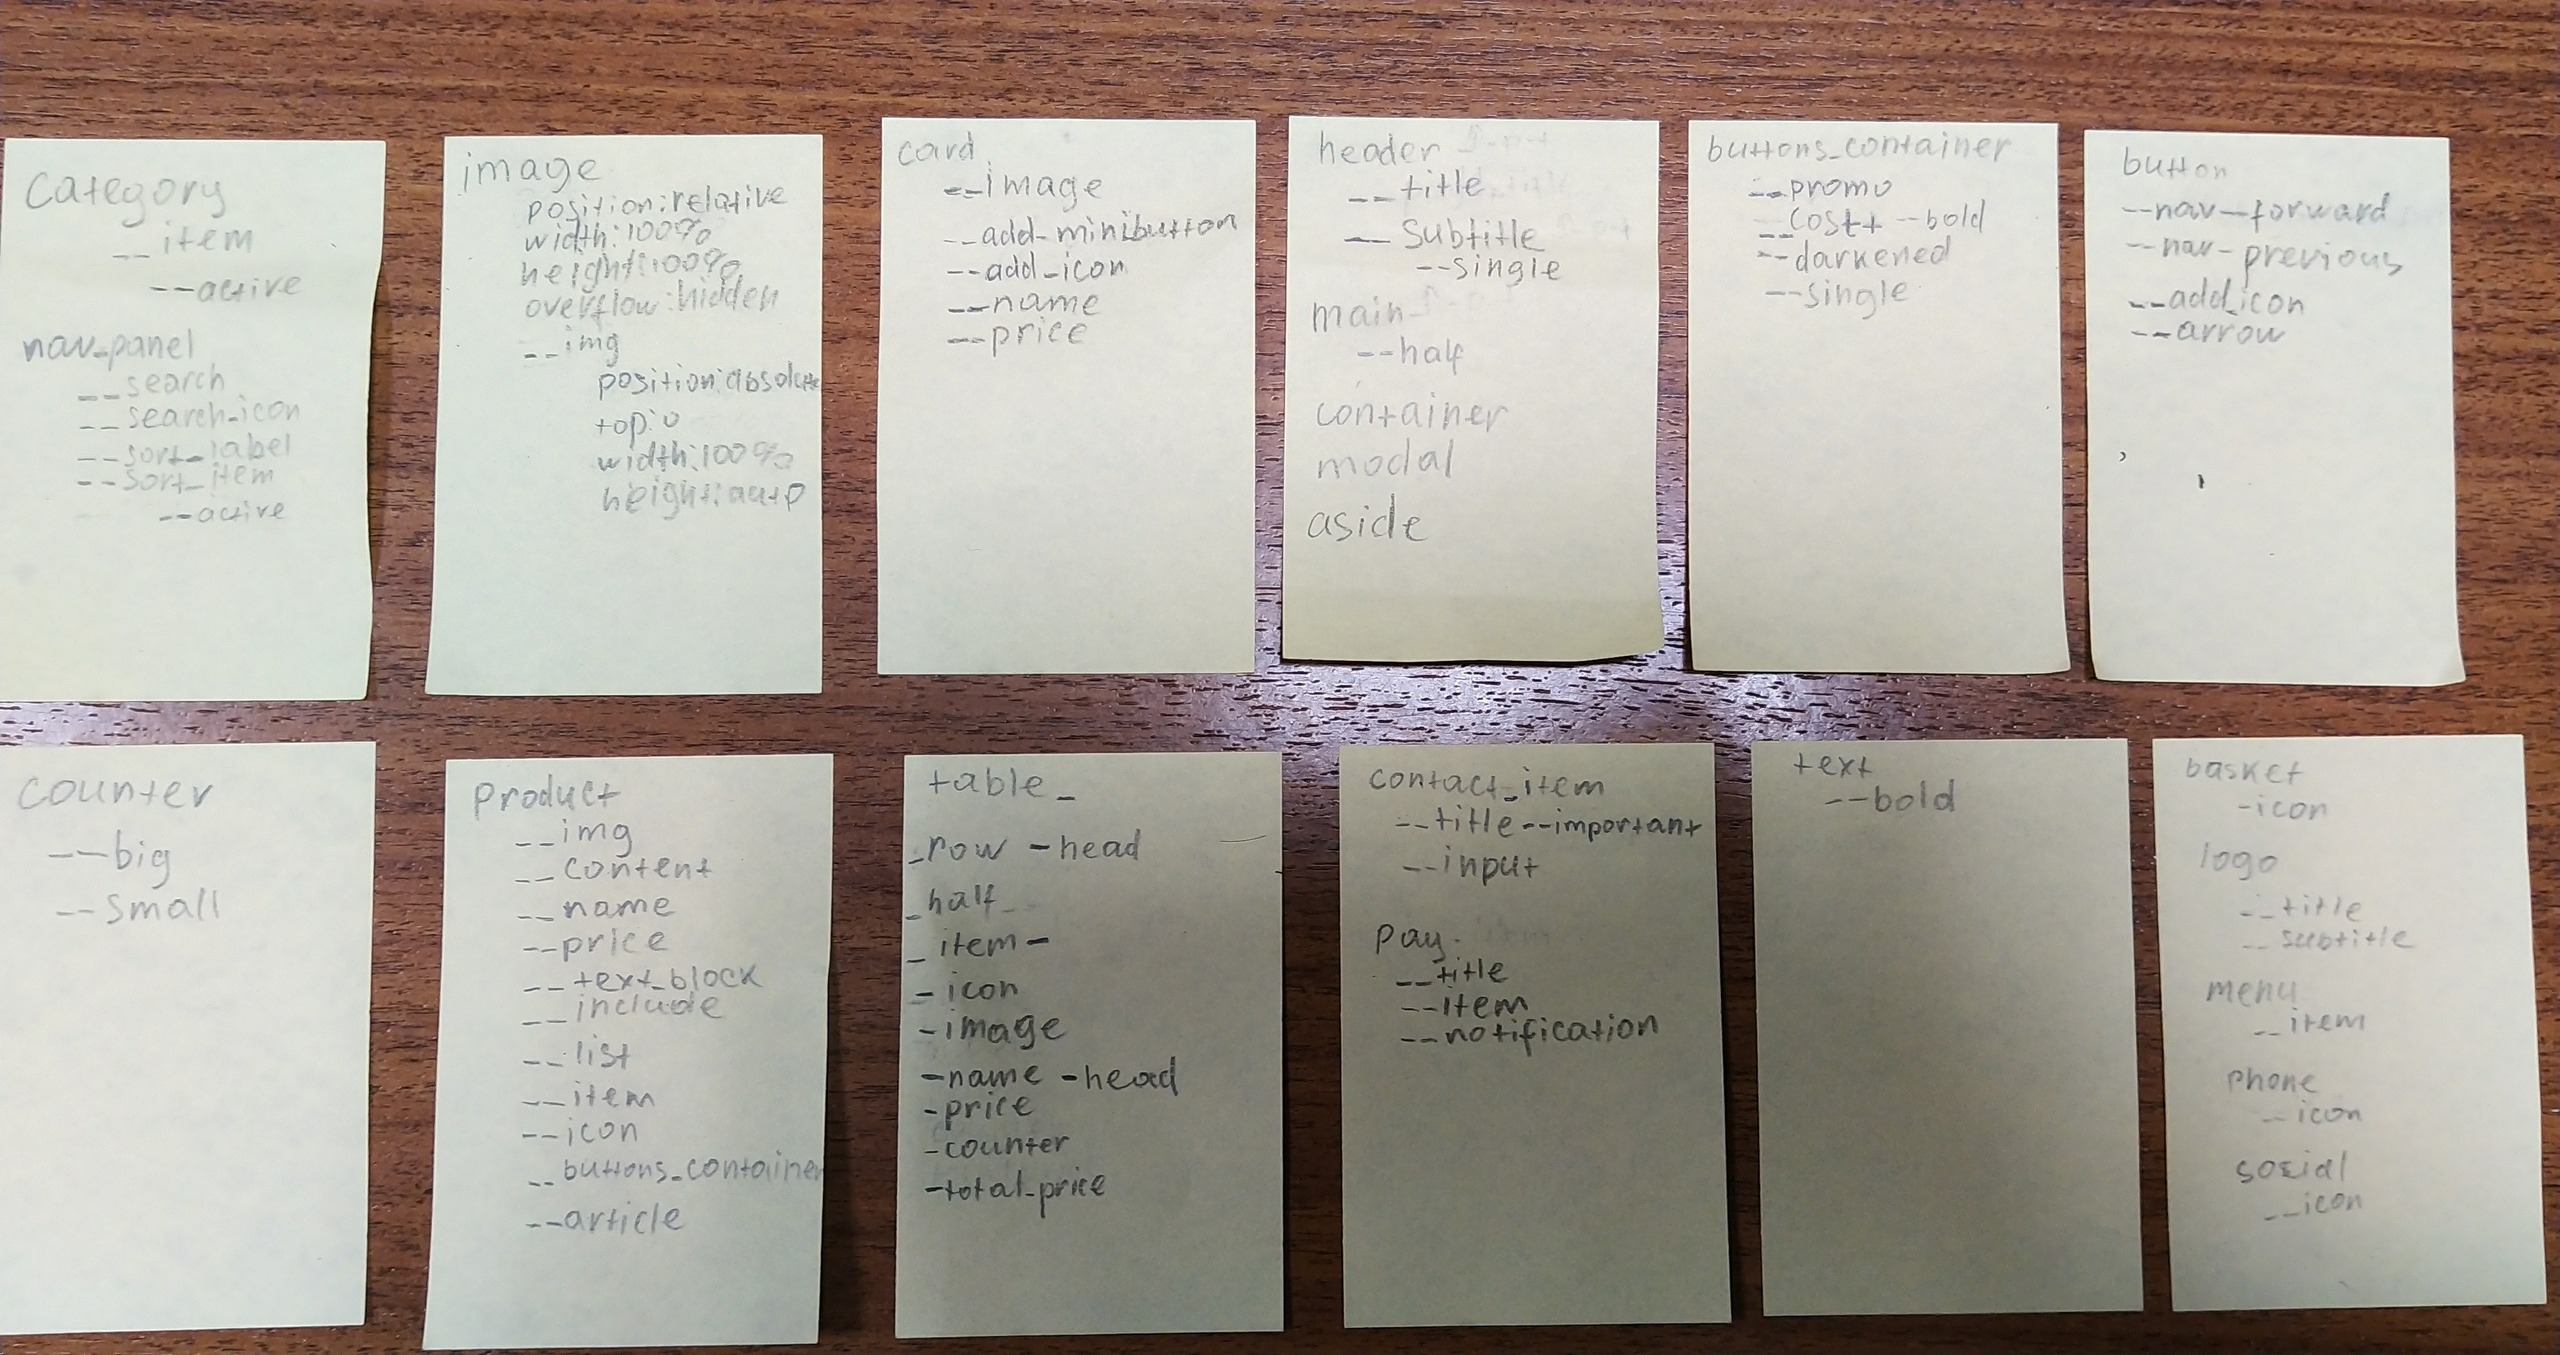 category
__item
--active
nav_panel
__search
__search_icon
__sort_label
__sort_item
--active
image
position:relative
width:100%
height:100%
overflow:hidden
__img
position:absolute
top:0
width:100%
height:auto
card
__image
__add_minibutton
__add_icon
__name
__price
header
__title
__subtitle
--single
main
--half
container
modal
aside
buttons_container
__promo
__cost --bold
--darkened
--single
button
--nav--forward
--nav-previous
__add_icon
__arrow
counter
--big
--small
product
__img
__content
__name
__price
__text_block
__include
__list
__item
__icon
__buttons_container
__article
table_
_row -head
_half_
_item-
-icon
-image
-name -head
-price
-counter
-total_price
contact_item
__title --important
__input
pay
__title
__item
__notification
text
--bold
basket
-icon
logo
__title
__subtitle
menu
__item
phone
__icon
social
__icon